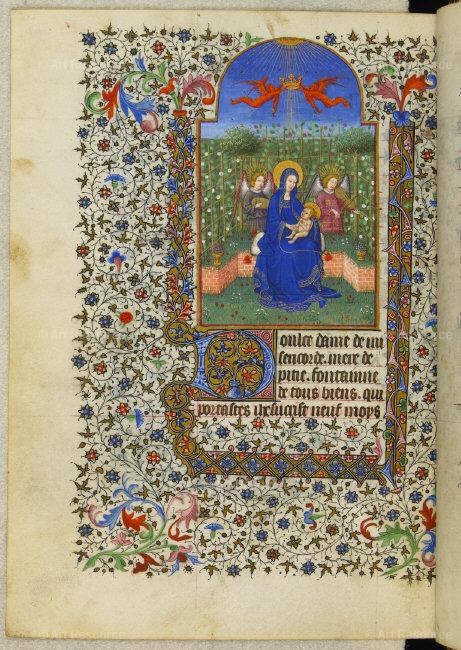 Doulce dame de mi
sericorde. mere de
pitie. fontainne
de tous biens. qui
portastes ihesucrist neuf moys
Art Resource